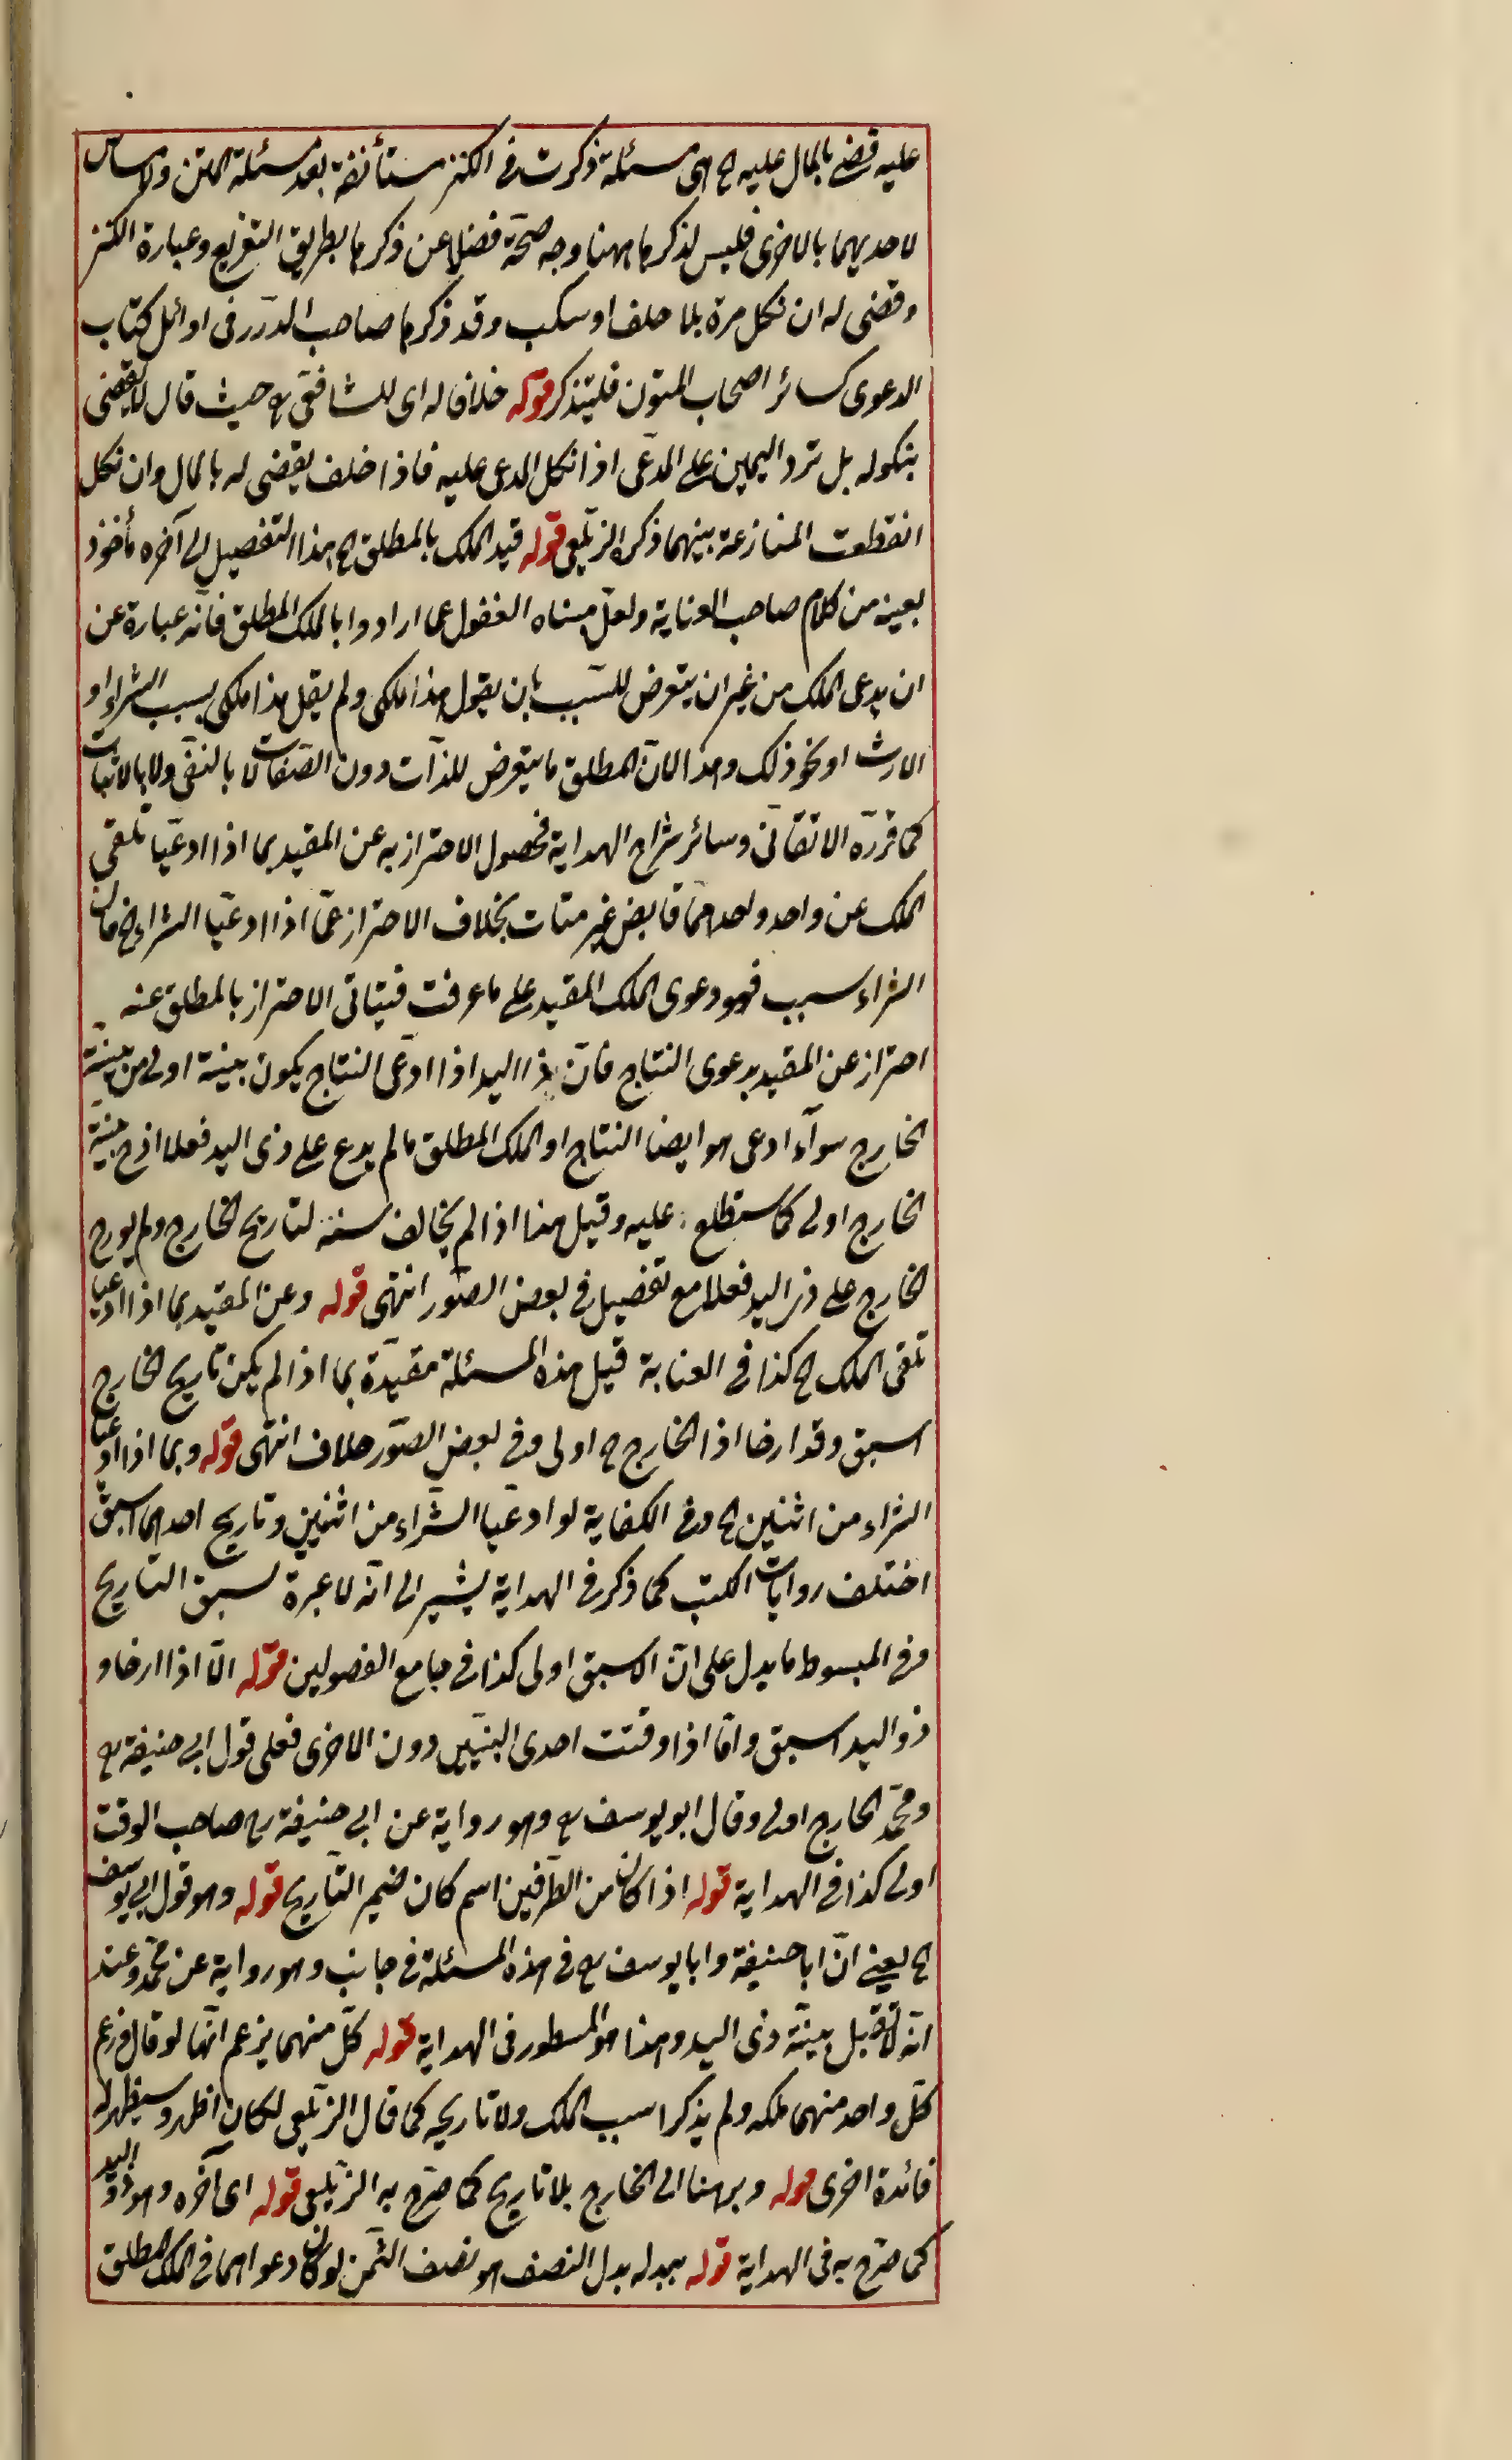 عليه قضى بالمال عليه الخ هى مسئلة ذكرت فى الكنز مستأنفة بعد مسئلة المتن ولا مساس
لاحديهما بالاخرى فليس لذكرها ههنا وجه صحة فضلا عن ذكرها بطريق التفريع وعبارة الكنز
وقضى له ان نكل مرة بلا حلف او سكت وقد ذكرها صاحب الدرر فى اوائل كتاب
الدعوى كسائر اصحاب المتون فليتذكر قوله خلافا له اى للشافعى رح حيث قال لا يقضى
بنكوله بل ترد اليمين على المدعى اذا نكل المدعى عليه فاذا حلف يقضى له بالمال وان نكل
انقطعت المنازعة بينهما ذكره الزيلعى قوله قيد الملك بالمطلق الخ هذا التفصيل الى آخره مأخوذ
بعينه من كلام صاحب العناية ولعل مبناه الغفول عما ارادوا بالملك المطلق فانه عبارة عن
ان يدعى الملك من غير ان يتعرض للسبب بان يقول هذا ملكى ولم يقل هذا ملكى بسبب الشراء او
الارث او نحو ذلك وهذا لان المطلق ما يتعرض للذات دون الصفات لا بالنفى ولا بالاثبات
كما قرره الاتقانى وسائر شراح الهداية فحصول الاحتراز به عن المقيد بما اذا ادعيا تلقى
الملك عن واحد واحدهما قابض غير متات بخلاف الاحتراز عما اذا ادعيا الشراء الخ فان
الشراء سبب فهو دعوى الملك المقيد على ما عرفت فيتاتى الاحتراز بالمطلق عنه
احتراز عن المقيد بدعوى النتاج فان ذا اليد اذا ادعى النتاج يكون بينة اولى من بينة
الخارج سواء ادعى هو ايضا النتاج او الملك المطلق ما لم يدع على ذى اليد فعلا اذ ح بينة
الخارج اولى كما ستطلع عليه وقيل هذا اذا لم يخالف سنه لتاريخ الخارج ولم يورخ
الخارج على ذى اليد فعلا مع تفصيل فى بعض الصور انتهى قوله وعن المقيد بما اذا ادعيا
تلقى الملك الخ كذا فى العناية قيل هذه المسئلة مقيدة بما اذا لم يكن تاريخ الخارج
اسبق وقد ارخا اذ الخارج ح اولى وفى بعض الصور خلاف انتهى قوله وبما اذا ادعيا
الشراء من اثنين الخ وفى الكفاية لو ادعيا الشراء من اثنين وتاريخ احدهما اسبق
اختلف روايات الكتب كما ذكر فى الهداية يشير الى انه لا عبرة لسبق التاريخ
وفى المبسوط ما يدل على ان الاسبق اولى كذا فى جامع الفصولين قوله الا اذا ارخا و
ذو اليد اسبق واما اذا وقتت احدى البينتين دون الاخرى فعلى قول ابى حنيفة رح
ومحمد الخارج اولى وقال ابو يوسف رح وهو رواية عن ابى حنيفة رح صاحب الوقت
اولى كذا فى الهداية قوله اذا كان من الطرفين اسم كان ضمير التاريخ قوله وهو قول ابى يوسف
الخ يعنى ان ابا حنيفة وابا يوسف رح فى هذه المسئلة فى جانب وهو رواية عن محمد وعند
انه لا تقبل بينة ذى اليد وهذا هو المسطور فى الهداية قوله كل منهما يزعم انها لو قال فزعم
كل واحد منهما ملكه ولم يذكرا سبب الملك ولا تاريخه كما قال الزيلعى لكان اظهر وسيظهر له
فائدة اخرى قوله وبرهنا اى الخارج بلا تاريخ كما صرح به الزيلعى قوله اى آخره وهو ذو اليد
كما صرح به فى الهداية قوله ببدله بدل النصف هو نصف الثمن لو كان دعواهما فى الملك المطلق